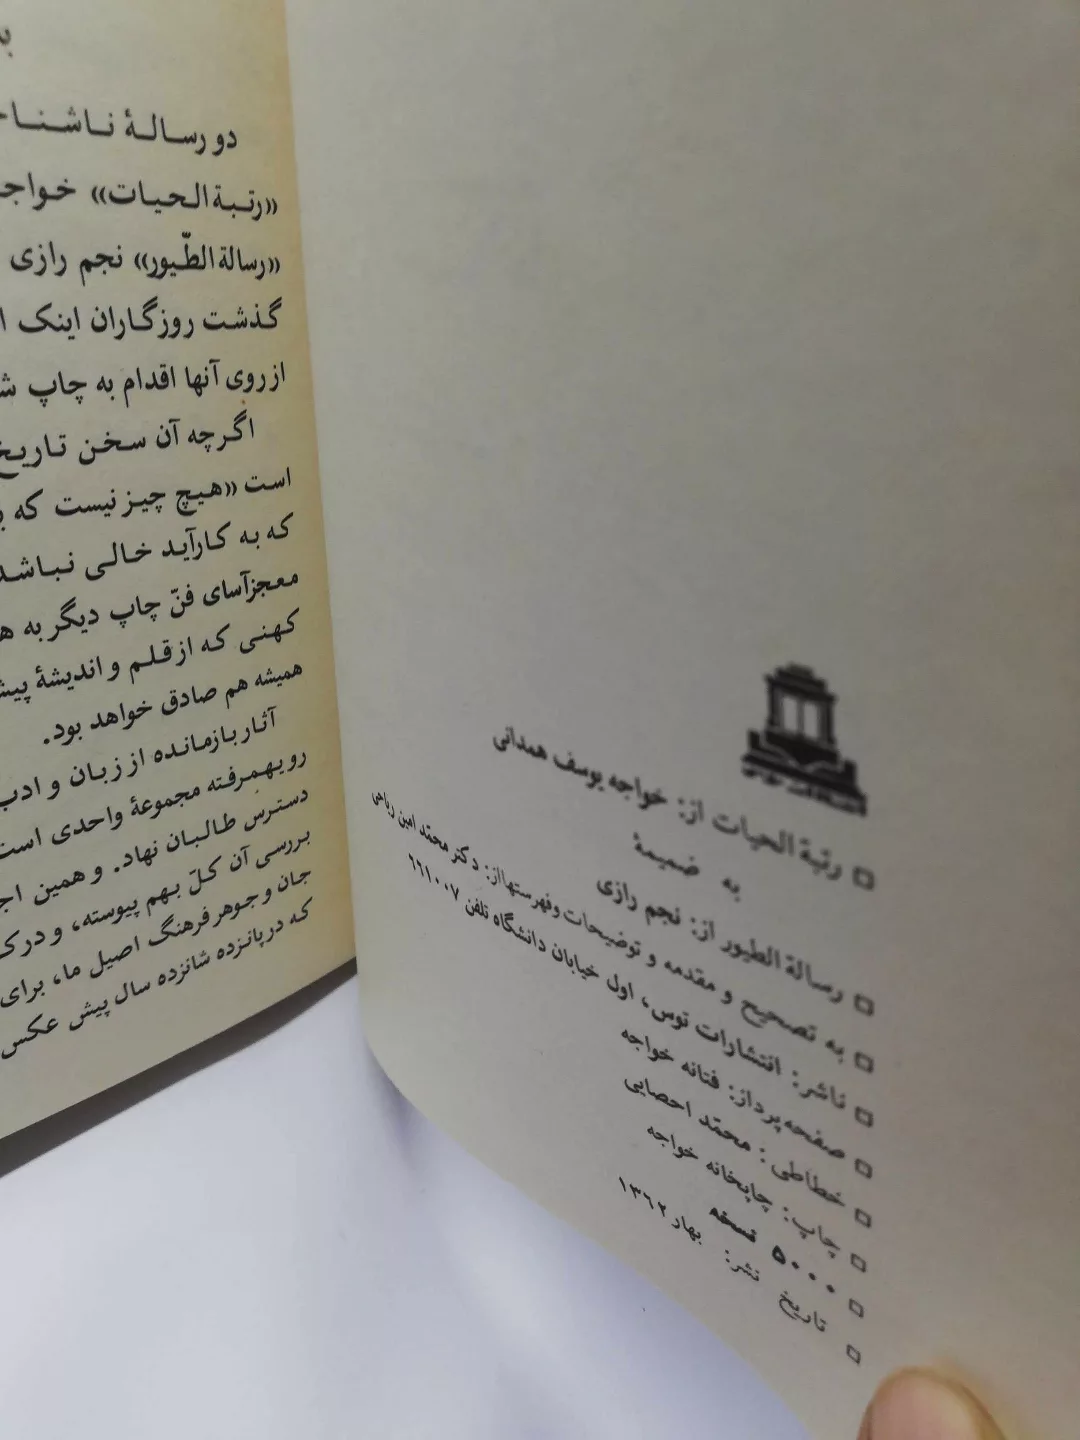 رتبة الحیات از: خواجه یوسف همدانی
به ضمیمهٔ
رسالة الطیور از: نجم رازی
به تصحیح و مقدمه و توضیحات وفهرستهااز: دکتر محمّد امین ریاحی
ناشر: انتشارات توس، اول خیابان دانشگاه تلفن ۶۶۱۰۰۷
صفحه پرداز: فتانه خواجه
خطاطی: محمّد احصایی
چاپ: چاپخانه خواجه
۵۰۰۰ نسخه
تاریخ نشر: بهار ۱۳۶۲
دو رسالهٔ ناشنا
«رتبة الحیات» خواج
«رسالة الطّیور» نجم رازی
گذشت روزگاران اینک ا
از روی آنها اقدام به چاپ ش
اگرچه آن سخن تاریخ
است «هیچ چیز نیست که ب
که به کارآید خالی نباشد
معجزآسای فنّ چاپ دیگر به ه
کهنی که از قلم و اندیشهٔ پیش
همیشه هم صادق خواهد بود.
آثار بازمانده از زبان و ادب
رویهمرفته مجموعهٔ واحدی است
دسترس طالبان نهاد. و همین اج
بررسی آن کلّ بهم پیوسته، و درک
جان و جوهر فرهنگ اصیل ما، برای
که در پانزده شانزده سال پیش عکس